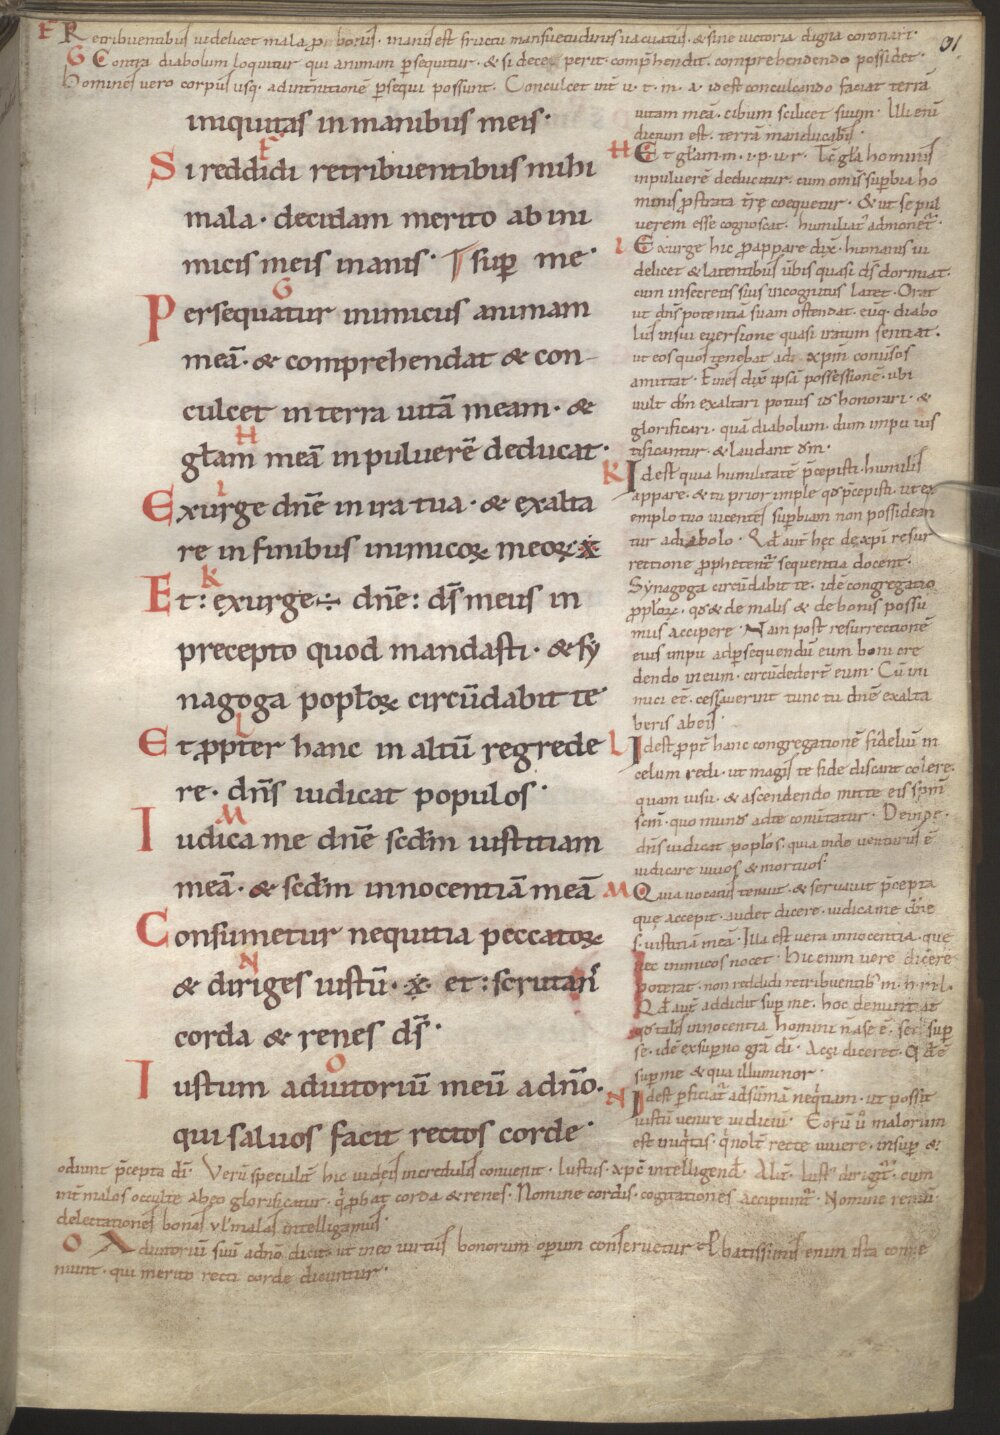 F Retribuentibus uidelicet mala pro bonis. inanis est fructu mansuetudinis uacuatus. & sine uictoria digna coronari.
G Contra diabolum loquitur qui animam ꝑsequitur. & si decep perit. comp̄hendit. comprehendendo possidet.
Homines uero corpus usq. ad interitutionē ꝑsequi possunt. Conculcet int̄ u. t. m. a. id est conculcando faciat terrā
91
iniquitas in manibus meis.
F
Si reddidi retribuentibus mihi
mala. decidam merito ab ini
micis meis inanis. suꝑ me.
G
Persequatur inimicus animam
meā. & comprehendat & con-
culcet in terra uitā meam. &
H
gl̄am meā in puluerē deducat.
I
Exurge dn̄e in ira tua. & exalta
re in finibus inimicoꝝ meoꝝ ※
K
Et: exurge ÷ dn̄e: ds̄ meus in
precepto quod mandasti. & sy
nagoga popl̄oꝝ circūdabit te
L
Et ꝓpter hanc in altū regrede
re. dn̄s iudicat populos.
M
Iudica me dn̄e scd̄m iustitiam
meā. & scd̄m innocentiā meā
Consumetur nequitia peccatoꝝ
N
& diriges iustū. ※ et: scrutans
corda & renes ds̄.
O
Iustum adiutoriū meū a dn̄o.
qui saluos facit rectos corde.
uitam meā. cibum scilicet suum. Illi enī
dictum est. terrā manducabis.
H Et gl̄am. m. i. p. u. r. Tc̄ gl̄a hominis
in puluerē deducitur. cum omīs suꝑbia ho
minis ꝓstrata tr̄ę coequetur. & ut se pul
uerem esse cognoscat. humiliat̄ admonet̄.
I Exurge hic ꝓ appare dix̄. humanis ui
delicet & latentibus ūbis quasi ds̄ dormiat.
cum in secretis suis incognitus latet. Orat
ut dn̄s potentiā suam ostendat. eūq. diabo
lus in sui euersione quasi iratum sentiat.
ut eos quos tenebat ad xp̄m conuersos
amittat. Fines dix̄ ipsā possessionē. ubi
uult dn̄m exaltari potius id honorari. &
glorificari. quā diabolum. dum impii ius
tificantur. & laudant dm̄.
K Id est quia humilitatē p̄cepisti. humilis
appare. & tu prior imple qd̄ p̄cepisti. ut ex
emplo tuo uicentes suꝑbiam non possidean
tur a diabolo. Qd̄ aut̄ hęc de xp̄i resur
rectione ꝓphetent̄ sequentia docent.
Synagoga circūdabit te. idē congregatio
popl̄oꝝ. qd̄ & de malis & de bonis possu
mus accipere. Nam post resurrectionē
eius impii ad ꝑsequendū eum boni cre
dendo in eum. circūdederr̄ eum. Cū ini
mici eē. cessauerint tunc tu dn̄e exalta
beris ab eis.
L Id est ꝓpt̄ hanc congregationē fidelium in
celum redi. ut magis te fide discant colere.
quam uisu. & ascendendo mitte eis sp̄m
sc̄m. quo mundus ad te conūtatur. Deinde.
dn̄s iudicat popl̄os. quia inde uenturus ē
iudicare uiuos & mortuos.
M Quia uocatus tenuit. & seruauit p̄cepta
quę accepit. audet dicere. iudica me dn̄e
s. iustitiā meā. Illa est uera innocentia. que
nec inimicos nocet. hic enim uere dicere
poterat. non reddidi retribuentib̄. m. h r. l.
Qd̄ aut̄ addidit suꝑ me. hoc denuntiat
qd̄ talis innocentia homini n̄ a se ē. set suꝑ
se. idē ex suꝑno gr̄a dī. Ac si diceret. Qd̄ ē
suꝑ me & qua illuminor.
N Id est ꝑficiat̄ ad sūmā neq̄tiam. ut possit
iustū uenire iudiciū. Eorū u̅ malorum
est iniq̄tas. q̄ nolt̄ recte uiuere. insuꝑ &
odiunt p̄cepta dī. Verū speculū hic iudęis incredulis conuenit. Iustus. xp̄c intelligend̄. Alit̄. Iust̄ dirigit̄. cum
int̄ malos occulte ab eo glorificatur. q̄ ꝓbat corda & renes. Nomine cordis. cogitationes accipiunt̄. Nomine reniū.
delectationes bonas ul̄ malas intelligamus.
O Adiutoriū suū a dn̄o dicit. ut in eo uirtus bonorum oꝑum conseruetur. Probatissimis enim ista conue
niunt. qui merito recti corde dicuntur.